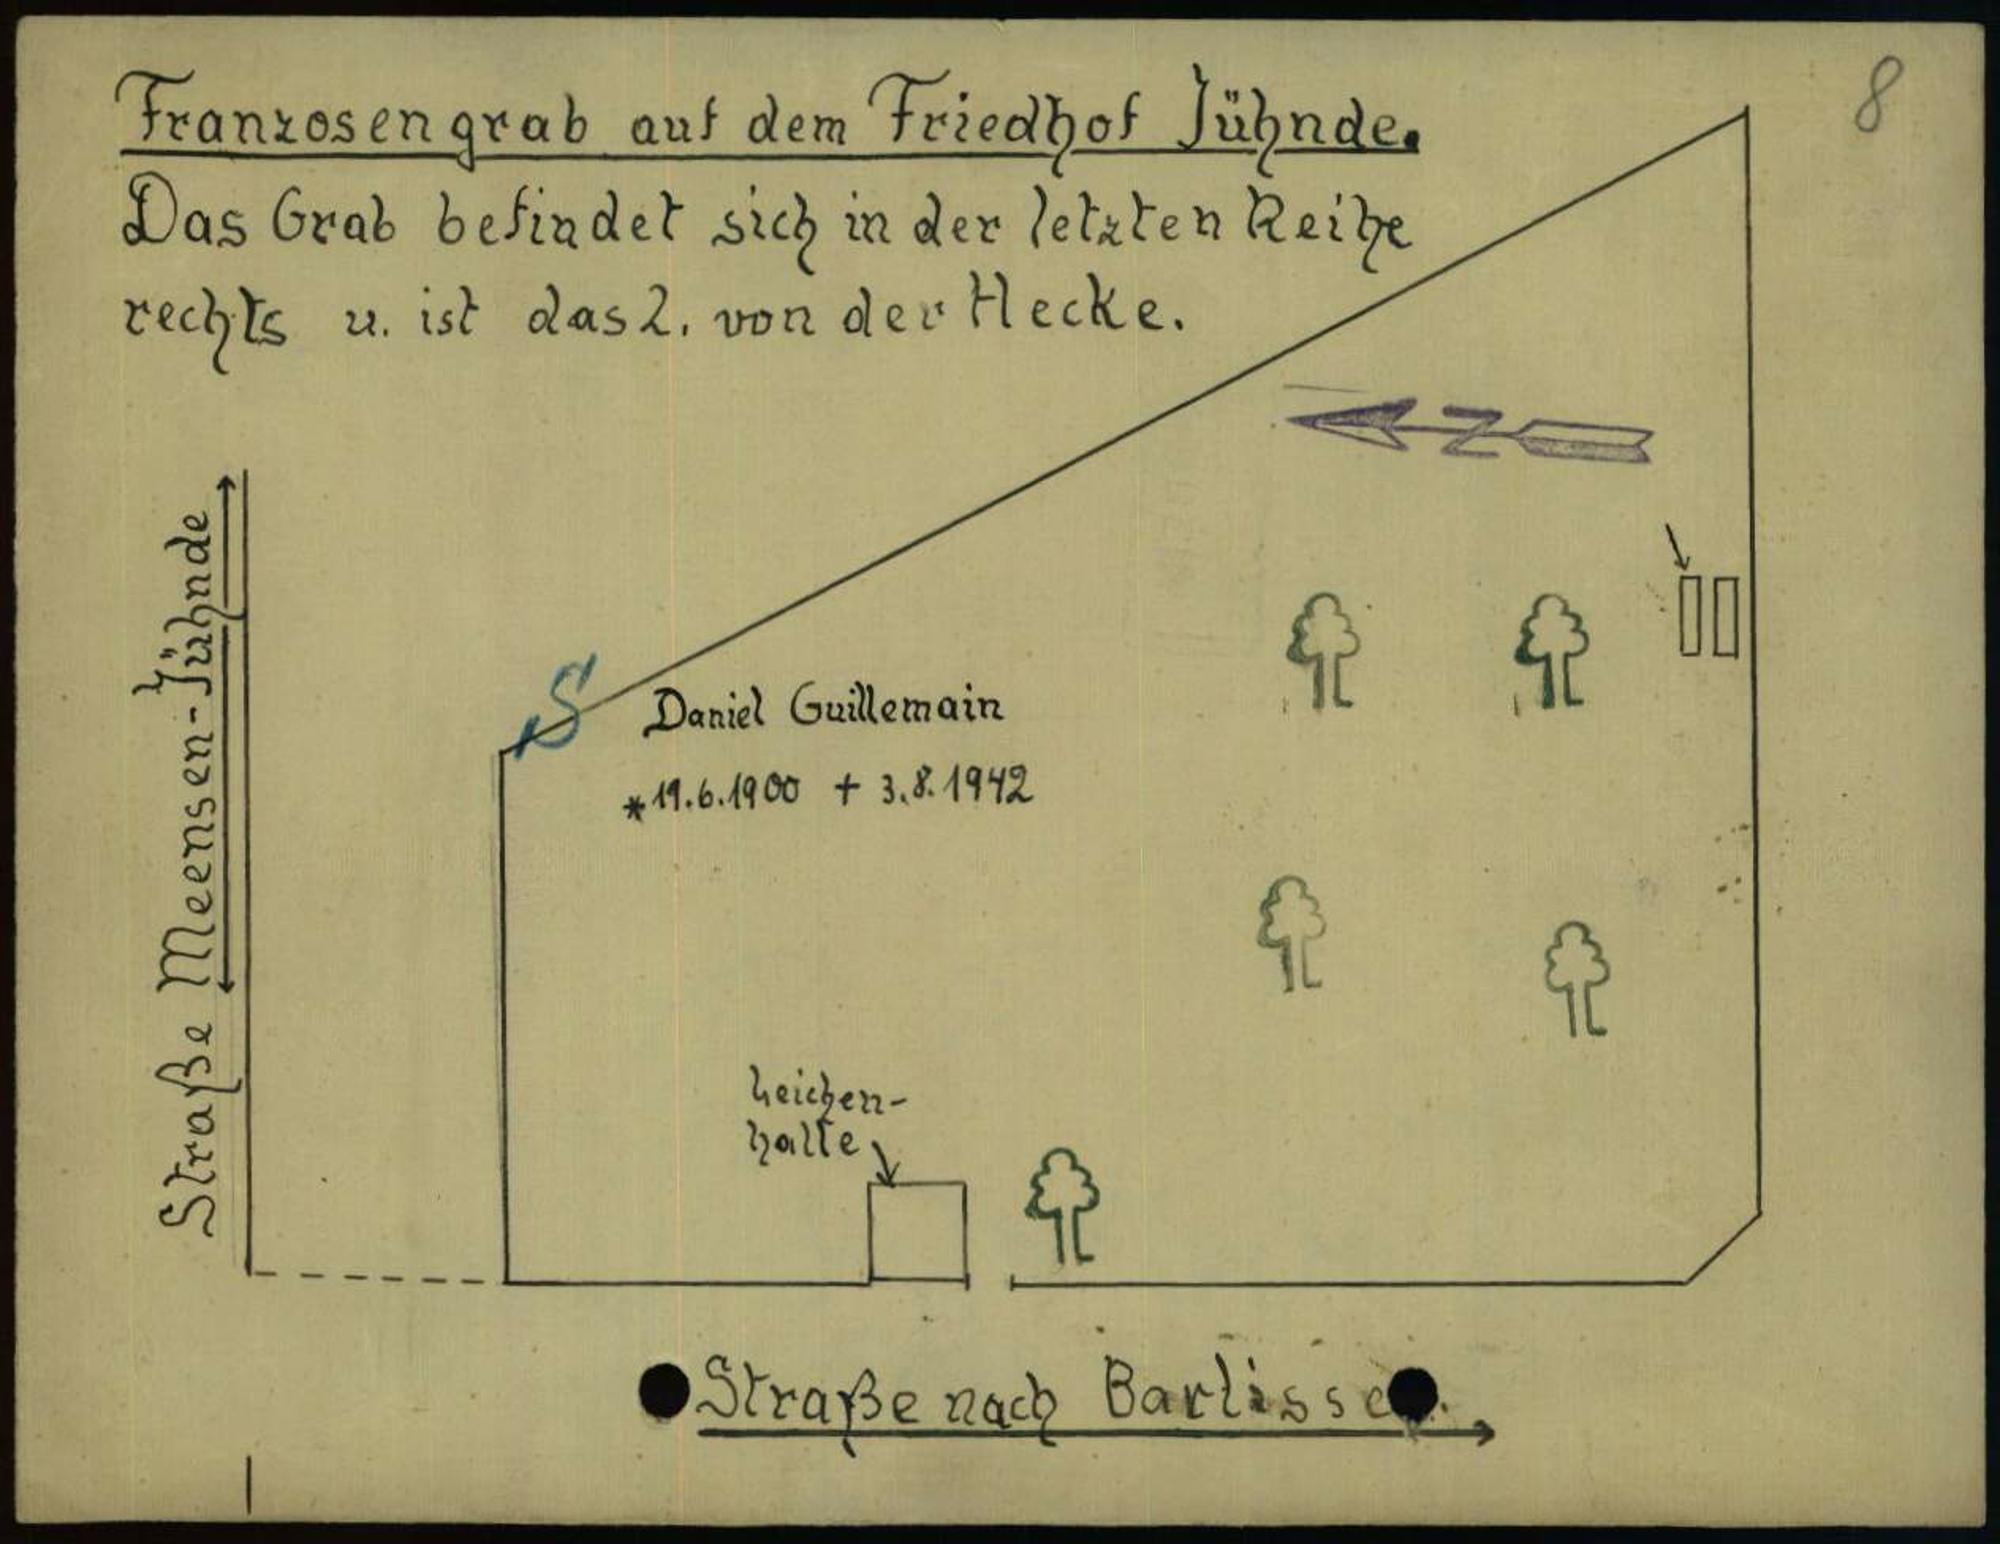 8
Franzosengrab auf dem Friedhof Jühnde.
Das Grab befindet sich in der letzten Reihe
rechts u. ist das 2. von der Hecke.
N
Straße Meensen-Jühnde
S
Daniel Guillemain
* 19.6.1900 + 3.8.1942
Leichen-
halle
Straße nach Barlissen.